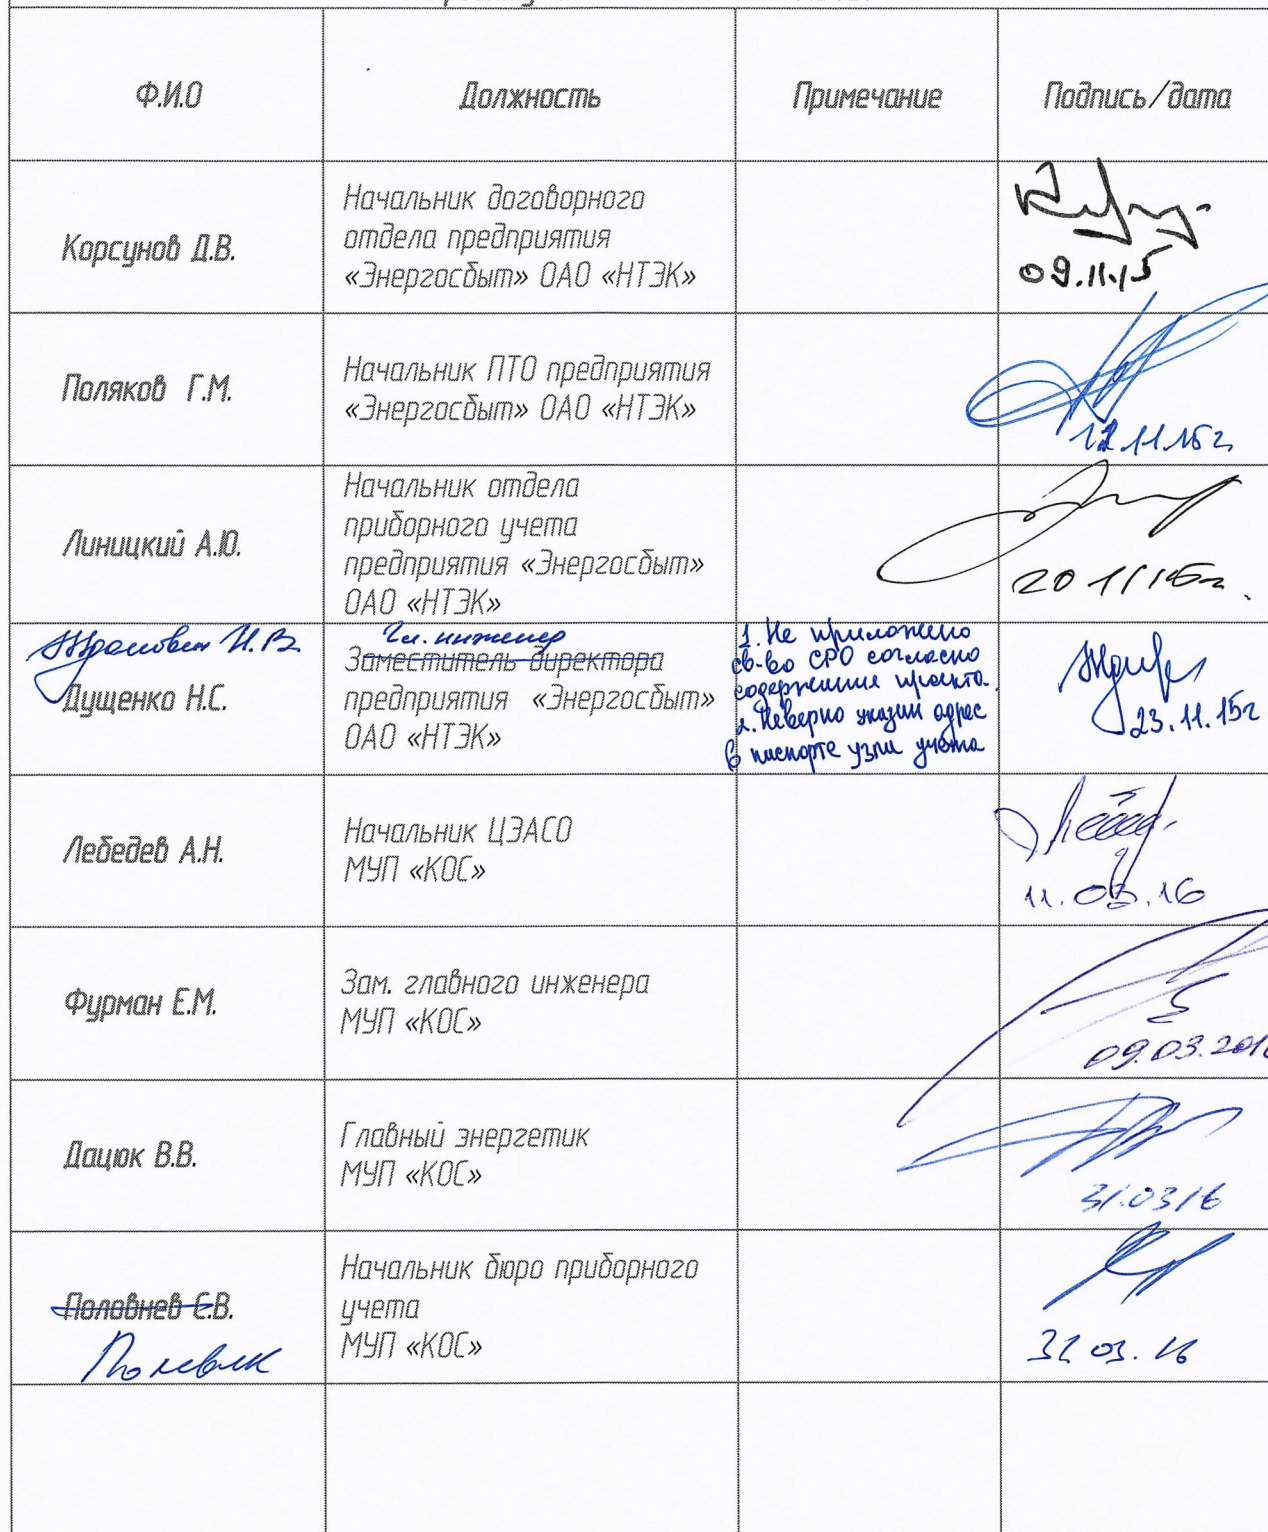 Ф.И.О Должность Примечание Подпись/дата
Корсунов Д.В.
Начальник договорного
отдела предприятия
«Энергосбыт» ОАО «НТЭК»
09.11.15
Поляков Г.М.
Начальник ПТО предприятия
«Энергосбыт» ОАО «НТЭК»
12.11.15г
Линицкий А.Ю.
Начальник отдела
приборного учета
предприятия «Энергосбыт»
ОАО «НТЭК»
20 11 15г.
И.В.
Дущенко Н.С.
Гл. инженер
Заместитель директора
предприятия «Энергосбыт»
ОАО «НТЭК»
1. Не приложено
св-во СРО согласно
содержание проекта.
2. Неверно указан адрес
в паспорте узла учета
23.11.15г
Лебедев А.Н.
Начальник ЦЭАСО
МУП «КОС»
11.03.16
Фурман Е.М.
Зам. главного инженера
МУП «КОС»
09.03.201
Дацюк В.В.
Главный энергетик
МУП «КОС»
31.03 16
Половнев Е.В.
Начальник бюро приборного
учета
МУП «КОС»
03. 16